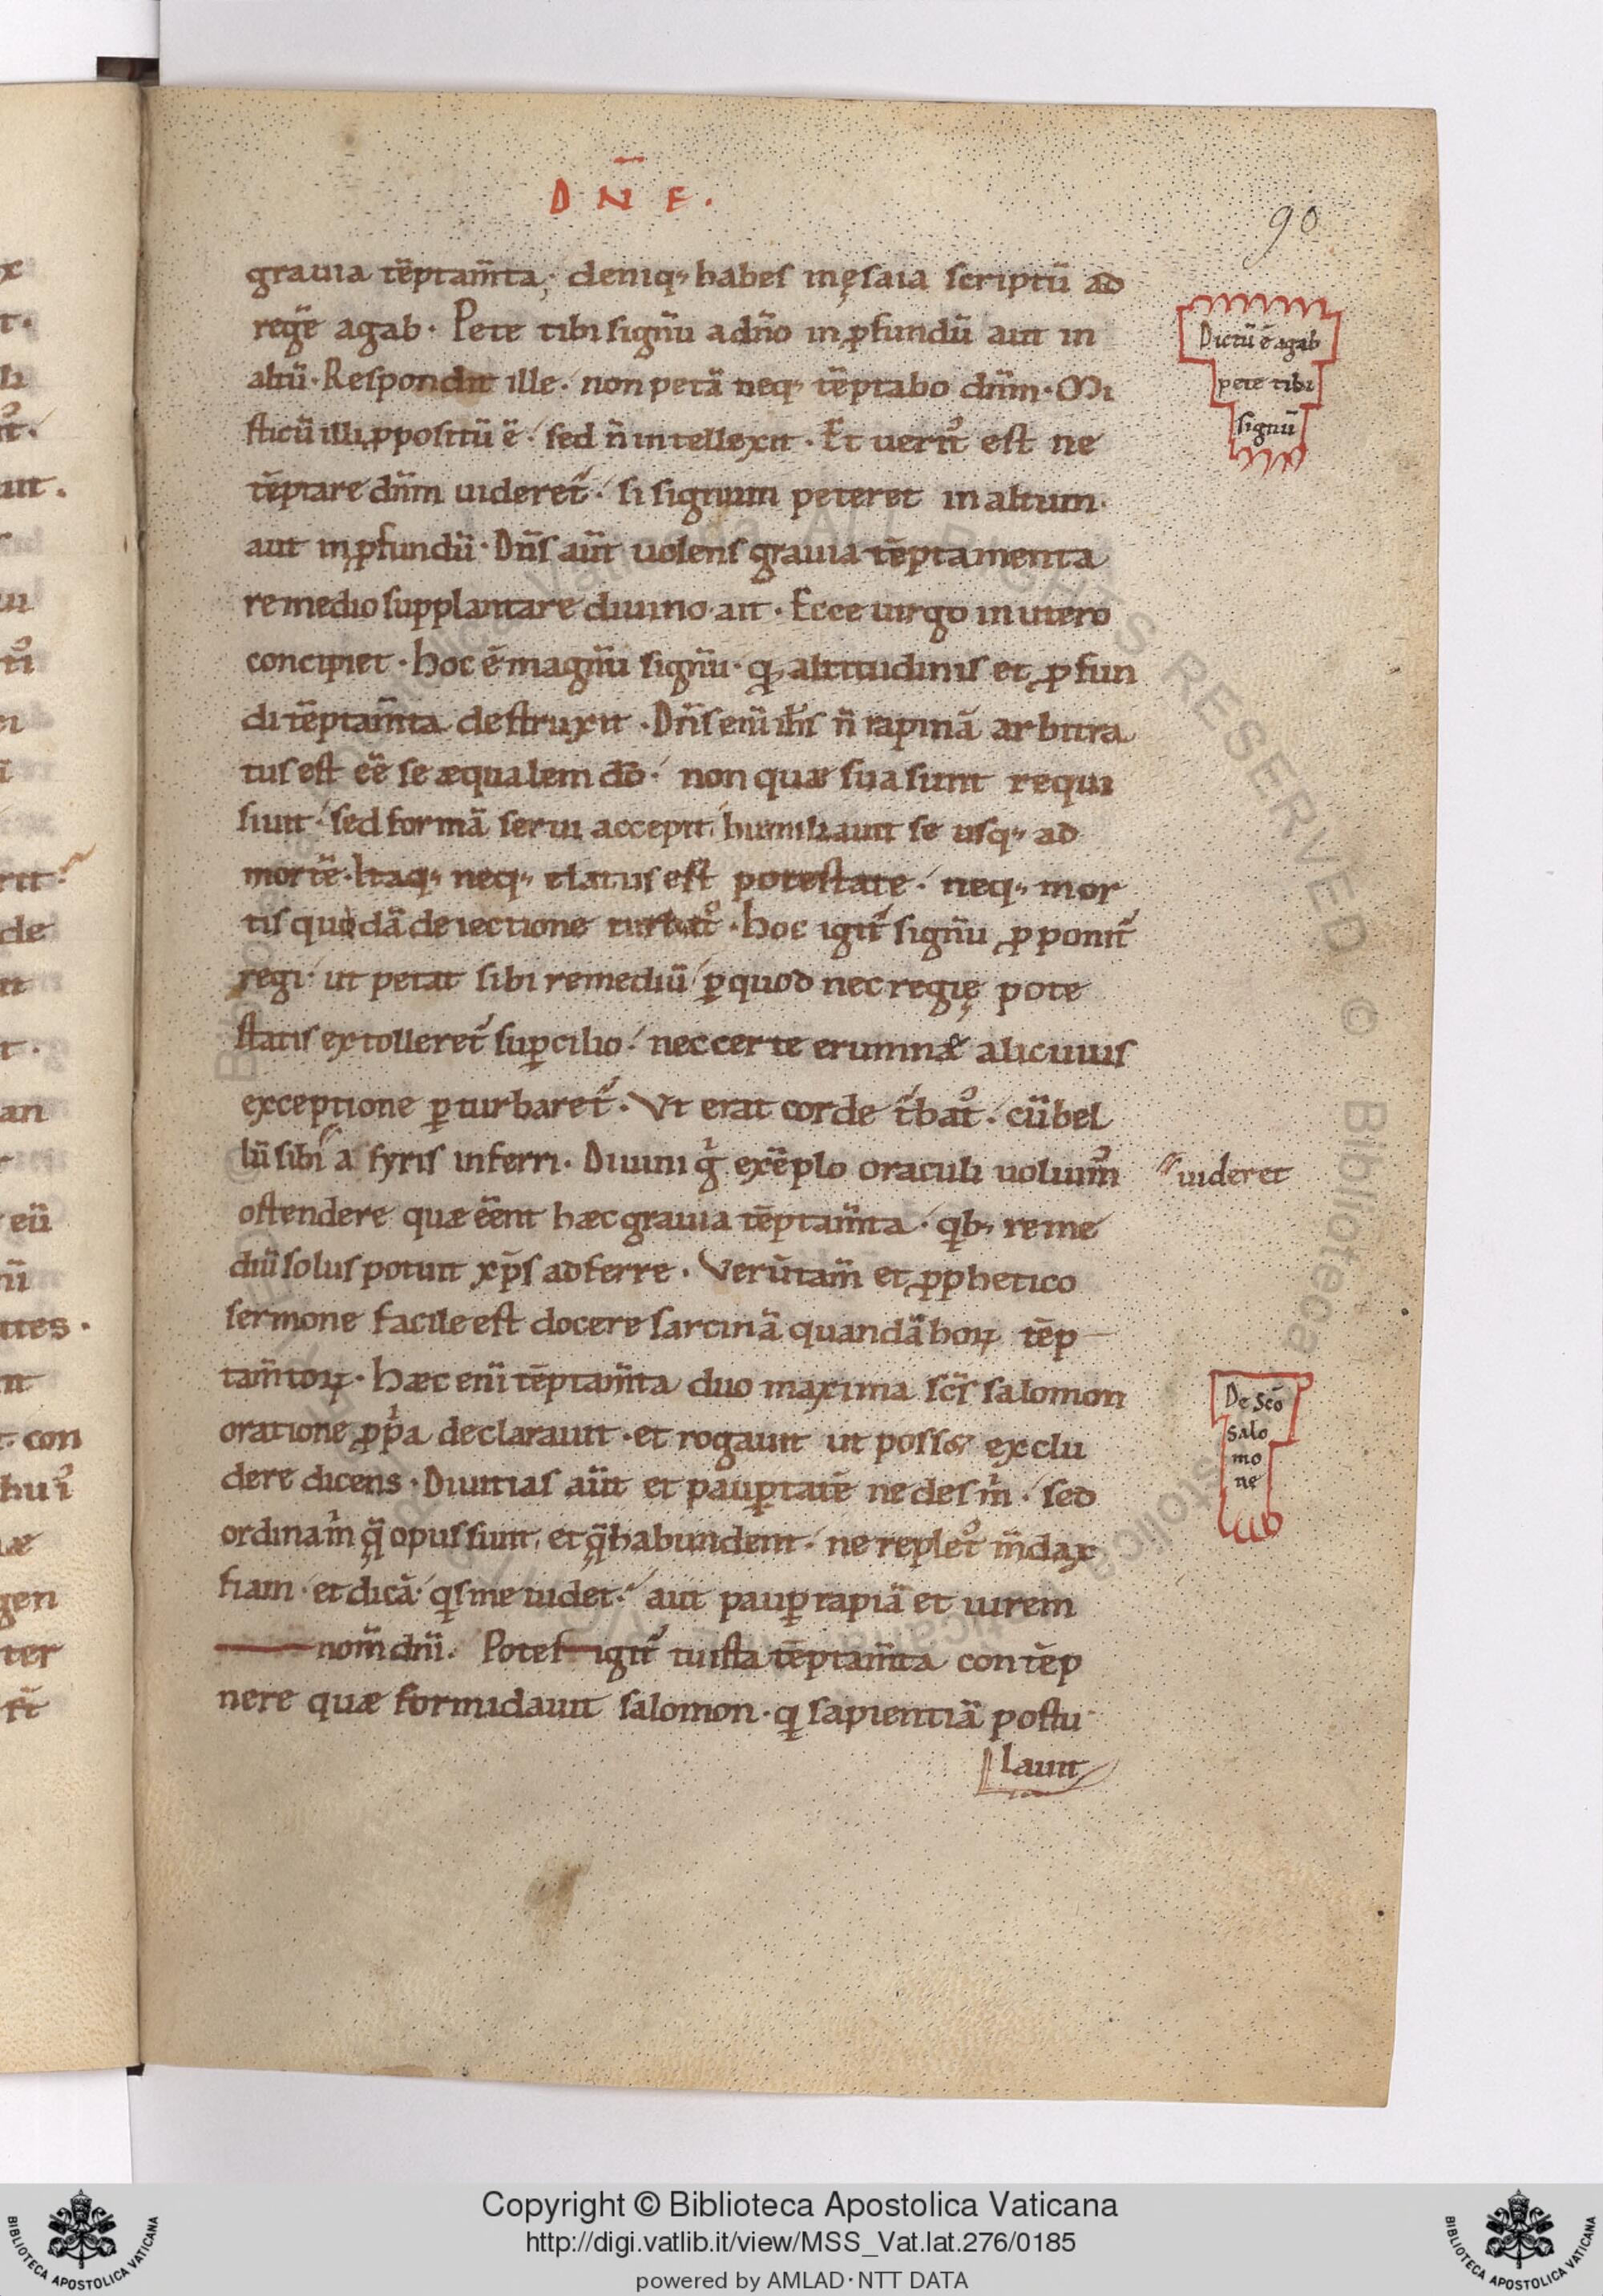 D N̄ E.
90
grauia tēptam̄ta; deniq; habes in ęsaia scriptū ad
regē agab. Pete tibi signū a dn̄o in ꝓfundū aut in
altū. Respondit ille. non petā neq; tēptabo dn̄m. Mi
sticū illi ꝓpositū ē. sed n̄ intellexit. Et uerit᷒ est ne
tēptare dn̄m uideret᷒. si signum peteret in altum.
aut in ꝓfundū. Dn̄s aūt uolens grauia tēptamenta
remedio supplantare diuino ait. Ecce uirgo in utero
concipiet. hoc ē magnū signū. qđ altitudinis et ꝓfun
di tēptam̄ta destruxit. Dn̄s enī ih̄s n̄ rapinā arbitra
tus est eē se æqualem dō. non quæ sua sunt requi
siuit. sed formā serui accepit, humiliauit se usq; ad
mortē. Itaq; neq; elatus est potestate. neq; mor
tis quodā deiectione turbat᷒. hoc igit᷒ signū ꝓponit᷒
regi. ut petat sibi remediū ꝑ quod nec regię pote
statis extolleret᷒ suꝑcilio. nec certe erumnæ alicuius
exceptione ꝑturbaret᷒. Vt erat corde t᷒bat᷒. cū bel
lū sibi a syris inferri. Diuini gͥ exēplo oraculi uoluim᷒
uideret
ostendere quæ eēnt hæc grauia tēptam̄ta. qb; reme
diū solus potuit xp̄s adferre. Verūtam̄ et ꝓphetico
sermone facile est docere sarcinā quandā hoꝝ tēp
tam̄toꝝ. hæc enī tēptam̄ta duo maxima scs̄ salomon
oratione ꝓpͥa declarauit. et rogauit ut posset excлu
dere dicens. Diuitias aūt et pauꝑtatē ne des m̍. sed
ordina m̍ q̄ opus sunt, et q̄ habundent. ne replet᷒ m̄dax
fiam. et dicā. qs me uidet. aut pauꝑ rapiā et iurem
nom̄ dn̄i. Potes igit᷒ tu ista tēptam̄ta contēp
nere quæ formidauit salomon. q sapientiā postu
lauit
Dictū ē agab
pete tibi
signū
De Scō
salo
mo
ne
Copyright © Biblioteca Apostolica Vaticana
http://digi.vatlib.it/view/MSS_Vat.lat.276/0185
powered by AMLAD·NTT DATA
BIBLIOTECA APOSTOLICA VATICANA
BIBLIOTECA APOSTOLICA VATICANA